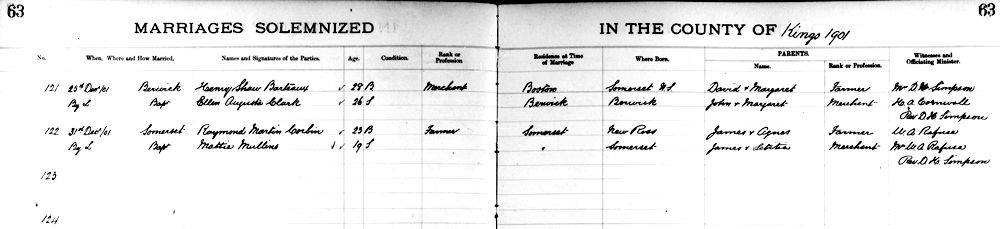 63 63
MARRIAGES SOLEMNIZED IN THE COUNTY OF Kings 1901
No. When, Where and How Married. Names and Signatures of the Parties. Age. Condition. Rank or Profession Residence at Time of Marriage Where Born. PARENTS. Name. Rank or Profession. Witnesses and Officiating Minister.
121 25th Dec/01 Berwick Henry Shaw Barteaux 28 B Merchant Boston Somerset N.S David & Margaret Farmer Mr D H Simpson
By L Bapt Ellen Augusta Clark 26 S Berwick Berwick John & Margaret Merchant H A Cornwall
Rev D H Simpson
122 31st Dec/01 Somerset Raymond Martin Corbin 23 B Farmer Somerset New Ross James & Agnes Farmer W A Rafuse
By L Bapt Mattie Mullins 19 S " Somerset James & Letitia Merchant Mrs W A Rafuse
Rev D H Simpson
123
124